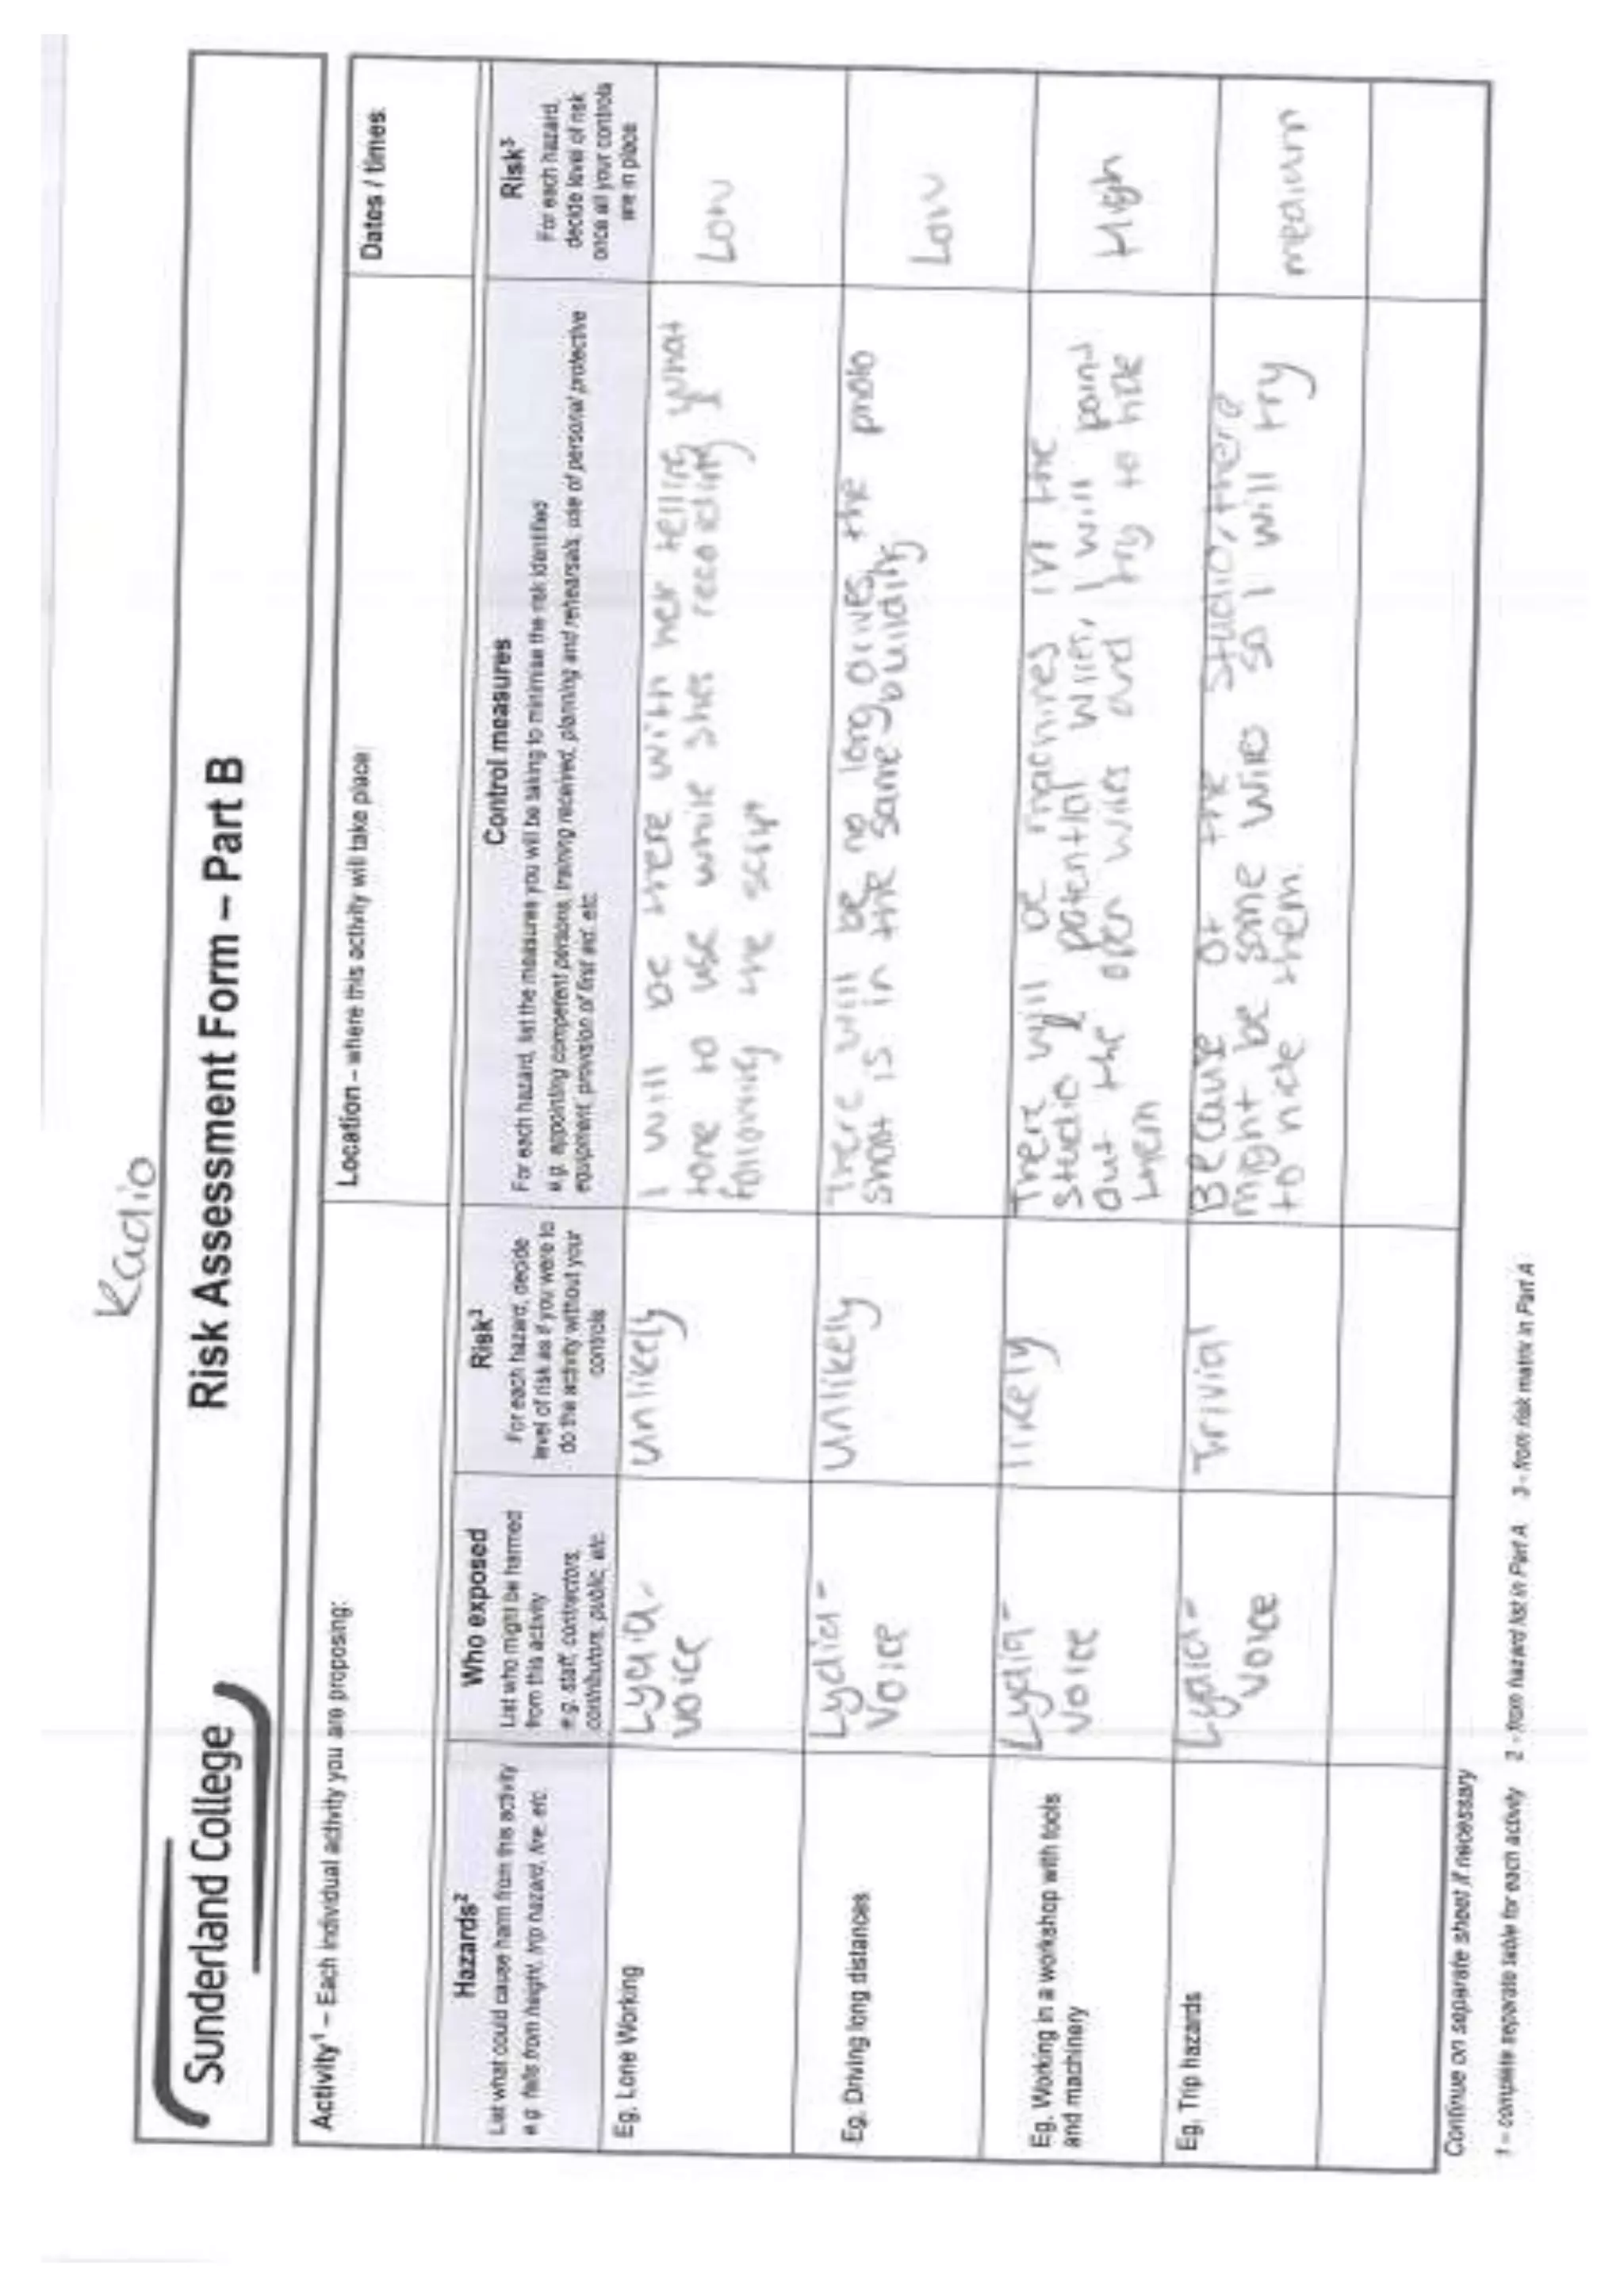 Radio
Sunderland College
Risk Assessment Form – Part B
Activity¹ – Each individual activity you are proposing:
Location – where this activity will take place
Dates / times
Hazards²
List what could cause harm from this activity
e.g. falls from height, trip hazard, fire, etc
Who exposed
List who might be harmed
from this activity
e.g. staff, contractors,
contributors, public, etc
Risk³
For each hazard, decide
level of risk as if you were to
do the activity without your
controls
Control measures
For each hazard, list the measures you will be taking to minimise the risk identified
e.g. appointing competent persons, training received, planning and rehearsals, use of personal protective
equipment, provision of first aid, etc
Risk³
For each hazard,
decide level of risk
once all your controls
are in place
Eg. Lone Working
Lydia -
voice
unlikely
I will be there with her telling what
tone to use while shes recording
following the script
Low
Eg. Driving long distances
Lydia -
Voice
unlikely
There will be no long drives, the photo
shoot is in the same building
Low
Eg. Working in a workshop with tools
and machinery
Lydia -
voice
likely
There will be machines in the
studio, potential wires, I will point
out the open wires and try to hide
them
High
Eg. Trip hazards
Lydia -
voice
Trivial
Because of the studio, there
might be some wires so I will try
to hide them.
medium
Continue on separate sheet if necessary
1 – complete separate table for each activity 2 - from hazard list in Part A 3 - from risk matrix in Part A